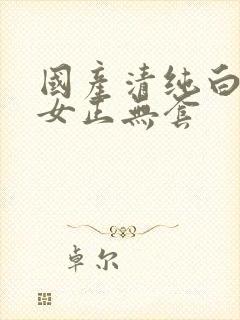 國產清纯白
女正無套
卓尔